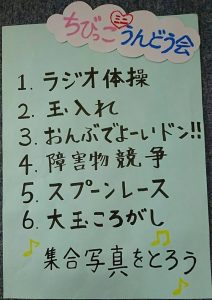 ちびっこミニうんどう会
1. ラジオ体操
2. 玉入れ
3. おんぶでよーいドン!!
4. 障害物競争
5. スプーンレース
6. 大玉ころがし
集合写真をとろう